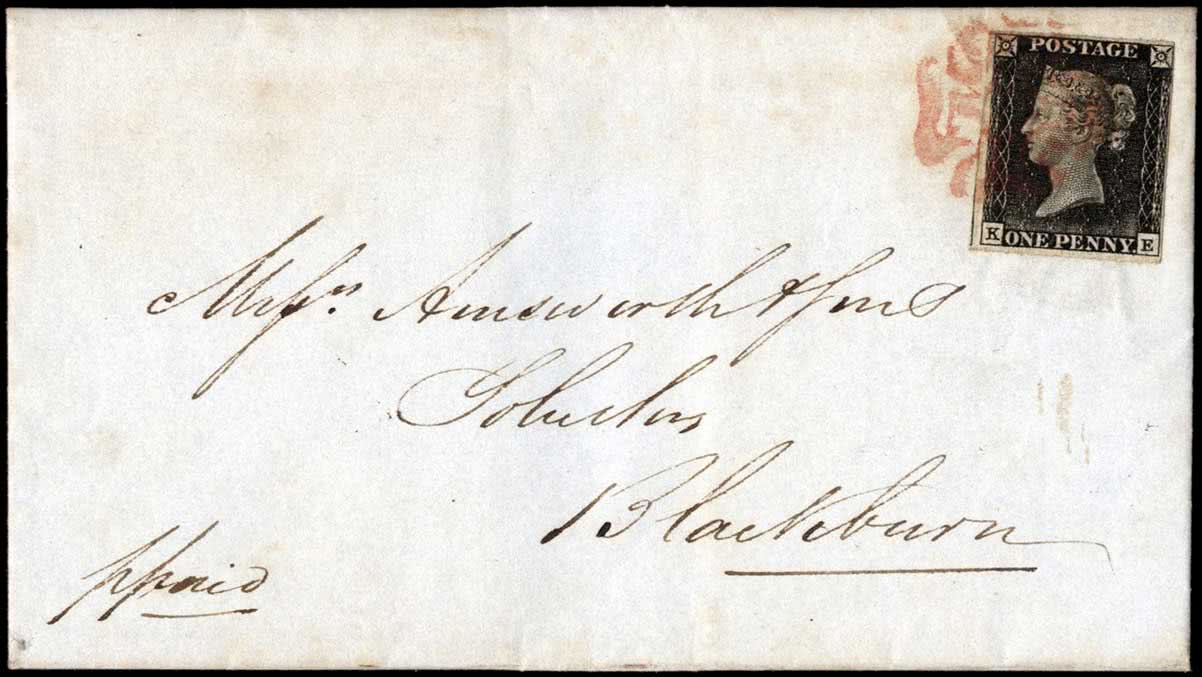 POSTAGE
K ONE PENNY. E
Messrs. Ainsworth & Sons
Solicitors
Blackburn
ppaid